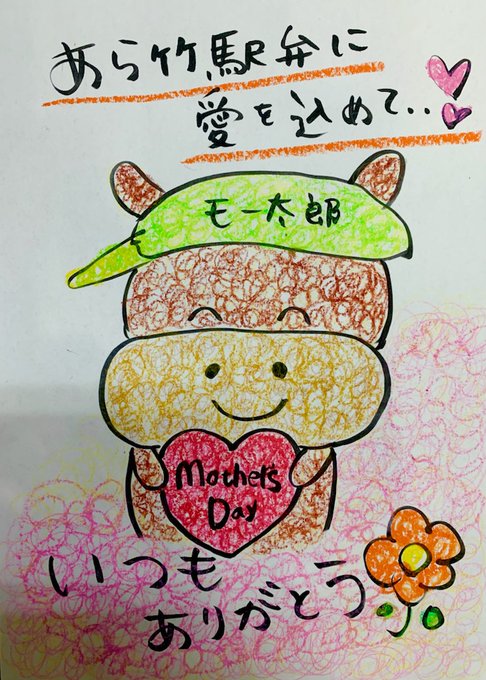 あら竹駅弁に
愛を込めて..
モー太郎
Mothers
Day
いつも
ありがとう